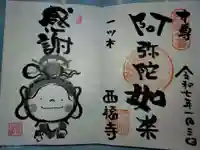 本尊
阿弥陀如来
一ツ木
西福寺
令和七年一月三日
感謝